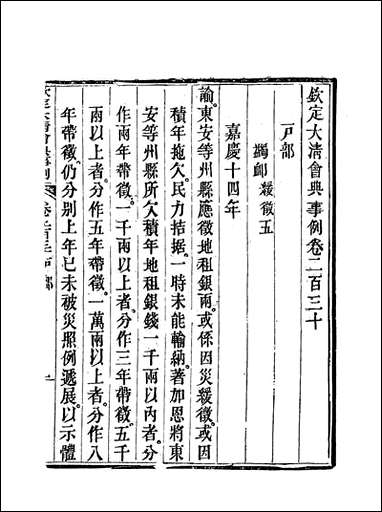 欽定大清會典事例卷二百三十
戶部
蠲卹緩徵五
嘉慶十四年
諭東安等州縣應徵地租銀兩或係因災緩徵或因
積年拖欠民力拮据一時未能輸納著加恩將東
安等州縣所欠積年地租銀錢一千兩以內者分
作兩年帶徵一千兩以上者分作三年帶徵五千
兩以上者分作五年帶徵一萬兩以上者分作八
年帶徵仍分別上年已未被災照例遞展以示體